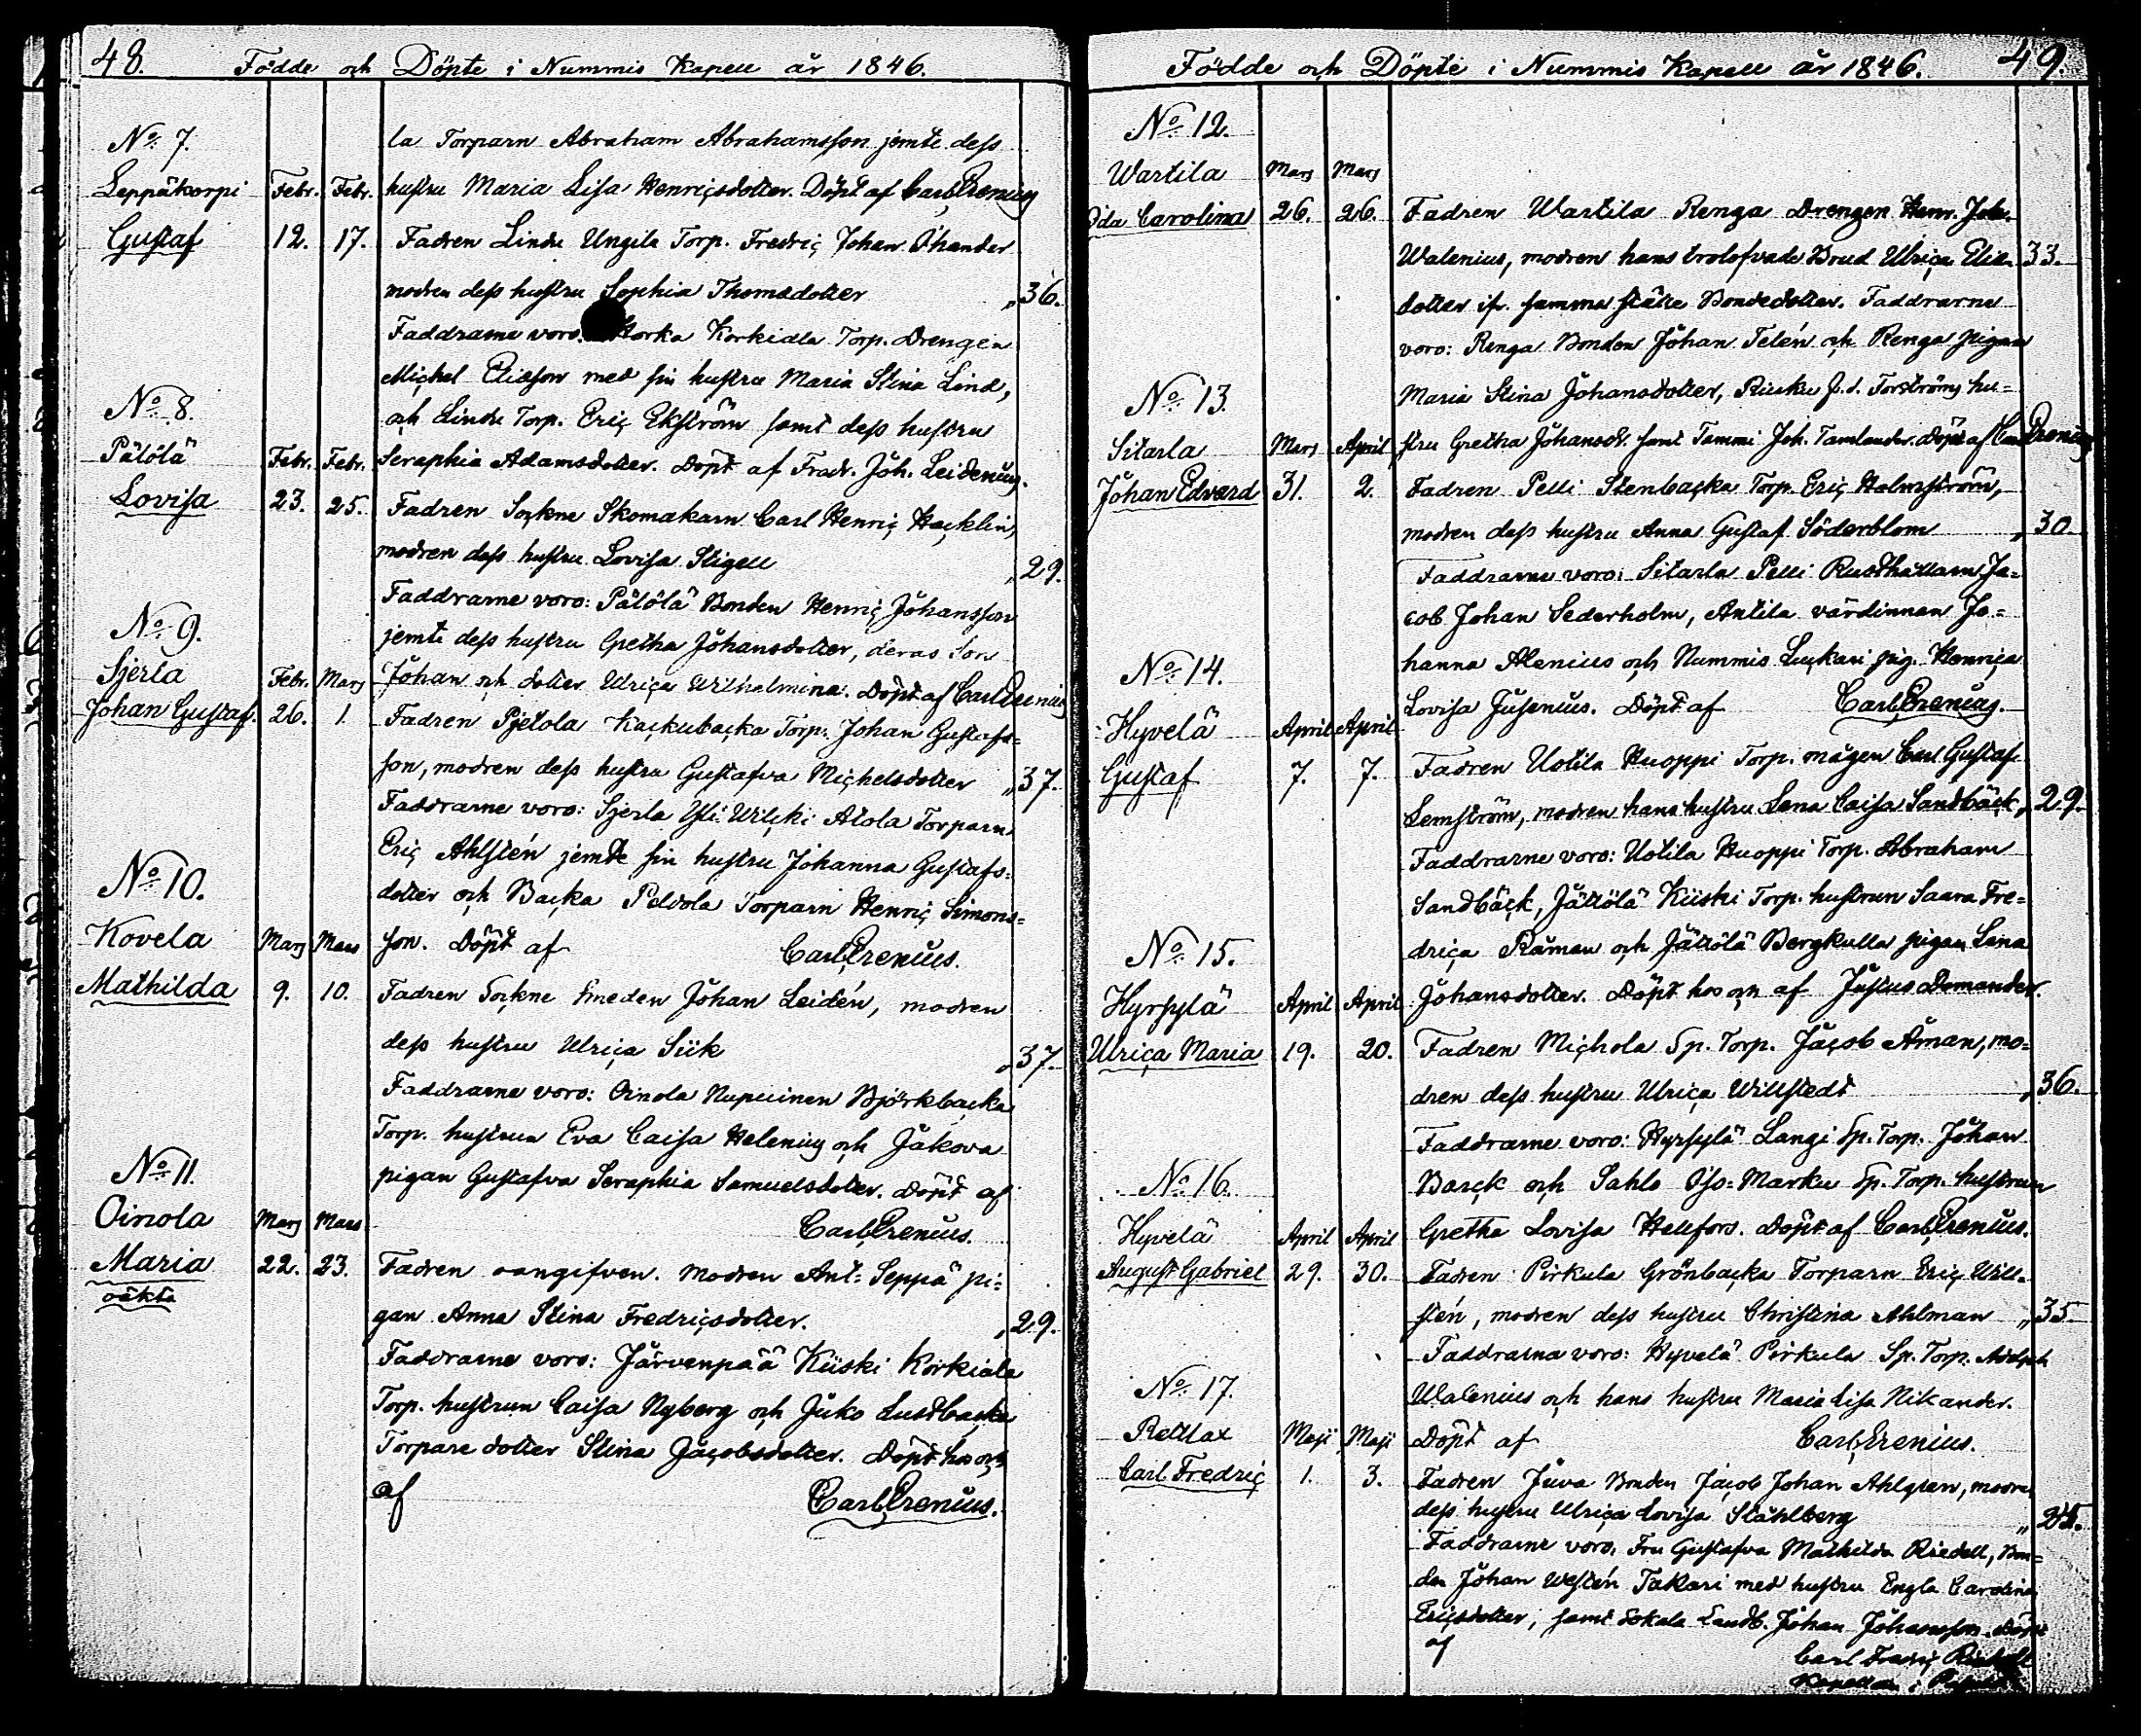 48. Födde och Döpte i Nummis Kapell år 1846.
No. 7.
la Torparn Abraham Abrahamsson jemte dess
Leppäkorpi Febr. Febr. hustru Maria Lisa Henricsdotter. Döpt af Carl Grenius
Gustaf 12. 17. Fadren Lindu Ungila Torp. Fredric Johan Öhander
modren dess hustru Sophia Thomsdotter „36.
Faddrarne voro: Korkiala Torp. Drengen
Michel Eliasson med sin hustru Maria Stina Lind,
No. 8.
och Lindu Torp. Eric Ekström samt dess hustru
Pätölä Febr. Febr. Seraphia Adamsdotter. Döpt af Fredr. Joh. Leidenius.
Lovisa 23. 25. Fadren Sockne Skomakarn Carl Henric Hacklin,
modren dess hustru Lovisa Stigell „29.
Faddrarne voro: Pätölä Bonden Henric Johansson
No. 9.
jemte dess hustru Gretha Johansdotter, deras Son
Sjerla Febr. Mars Johan och dotter Ulrica Wilhelmina. Döpt af Carl Grenius
Johan Gustaf. 26. 1. Fadren Pjetola Kackubacka Torp. Johan Gustafs=
son, modren dess hustru Gustafva Michelsdotter „37.
Faddrarne voro: Sjerla Yli Wilcki Atola Torparn
Eric Ahlstén jemte sin hustru Johanna Gustafs=
No. 10.
dotter och Backa Peldola Torparn Henric Simons=
Kovela Mars Mars son. Döpt af Carl Grenius.
Mathilda 9. 10. Fadren Sockne Smeden Johan Leidén, modren
dess hustru Ulrica Siik „37.
Faddrarne voro: Oinola Nupuinen Björkbacka
Torp. hustrun Eva Caisa Helenius och Jakova
No. 11.
pigan Gustafva Seraphia Samuelsdotter. Döpt af
Oinola Mars Mars Carl Grenius.
Maria 22. 23. Fadren oangifven. Modren Ant: Seppä pi=
oäkta
gan Anna Stina Fredricsdotter. „29.
Faddrarne voro: Järvenpää Kiiski Korkiala
Torp. hustrun Caisa Nyberg och Juko Lustbacka
Torpare dotter Stina Jacobsdotter. Döpt hos oss
af Carl Grenius.
Födde och Döpte i Nummis Kapell år 1846. 49.
No. 12.
Wartila Mars Mars
Ida Carolina 26. 26. Fadren Wartila Renga Drengen Henr. Joh.
Walenius, modren hans trolofvade Brud Ulrica Elia- 33.
dotter ifr. samma ställe Bondedotter. Faddrarne
voro: Renga Bonden Johan Telén och Renga pigan
No. 13.
Maria Stina Johansdotter, Riuku f.d. Torströms hu=
Sitarla Mars April stru Gretha Johansdr. samt Tammi Joh. Tamlander. Döpt af Carl Grenius
Johan Edvard 31. 2. Fadren Pelli Stenbacka Torp. Eric Holmström,
modren dess hustru Anna Gustaf Söderblom „30.
Faddrarne voro: Sitarla Pelli Rusthållarn Ja=
cob Johan Sederholm, Antila värdinnan Jo=
No. 14.
hanna Alenius och Nummis Luckari pig. Henrica
Lovisa Jusenius. Döpt af Carl Grenius.
Hyvelä April April
Gustaf 7. 7. Fadren Uotila Huoppi Torp. mågen Carl Gustaf
Lemström, modren hans hustru Lena Caisa Sandbäck „29.
Faddrarne voro: Uotila Huoppi Torp. Abraham
Sandbäck, Jättölä Kiiski Torp. hustrun Saara Fre=
No. 15.
drica Råman och Jättölä Bergkulla pigan Lena
Hyrsylä April April Johansdotter. Döpt hos oss af Justus Domander.
Ulrica Maria 19. 20. Fadren Michola Sp. Torp. Jacob Åman, mo=
dren dess hustru Ulrica Willstedt „36.
Faddrarne voro: Hyrsylä Langi Sp. Torp. Johan
No. 16.
Barck och Sahlo Oso=Marku Sp. Torp. hustrun
Hyvelä April April Gretha Lovisa Hellfors. Döpt af Carl Grenius.
August Gabriel 29. 30. Fadren Pirkula Grönbacka Torparn Eric Will=
stén, modren dess hustru Christina Ahlman „35
Faddrarna voro: Hyvelä Pirkula Sp. Torp. Adolph
No. 17.
Walenius och hans hustru Maria Lisa Nikander.
Retlax Maji Maji Döpt af Carl Grenius.
Carl Fredric 1. 3. Fadren Juva Bonden Jacob Johan Ahlgren, modren
dess hustru Ulrica Lovisa Ståhlberg „25.
Faddrarne voro: Fru Gustafva Mathilda Riedell, Bon=
den Johan Westén Takari med hustru Engla Carolina
Ericsdotter, samt Sokala Landb. Johan Johansson. Döpt
af Carl Fredric